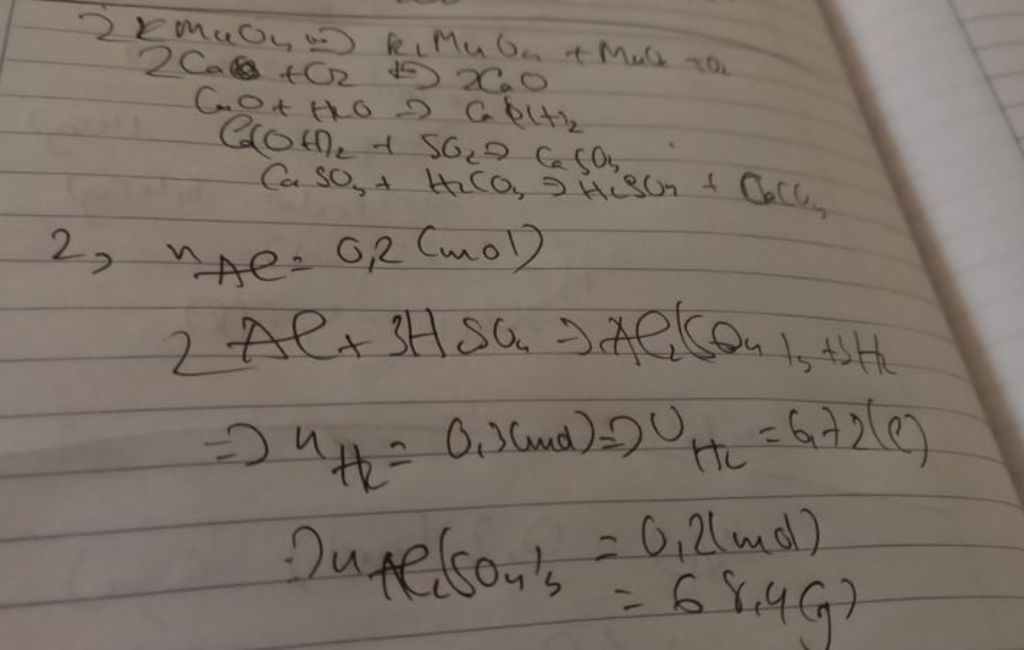 2KMnO4 => K2MnO4 + MnO2 + O2
2Ca + O2 => 2CaO
CaO + H2O => Ca(OH)2
Ca(OH)2 + SO2 => CaSO3
CaSO3 + H2CO3 => H2SO3 + CaCO3
2, nAl = 0,2 (mol)
2Al + 3H2SO4 => Al2(SO4)3 + 3H2
=> nH2 = 0,3(mol) => VH2 = 6,72(l)
=> nAl2(SO4)3 = 0,2(mol)
= 68,4(g)